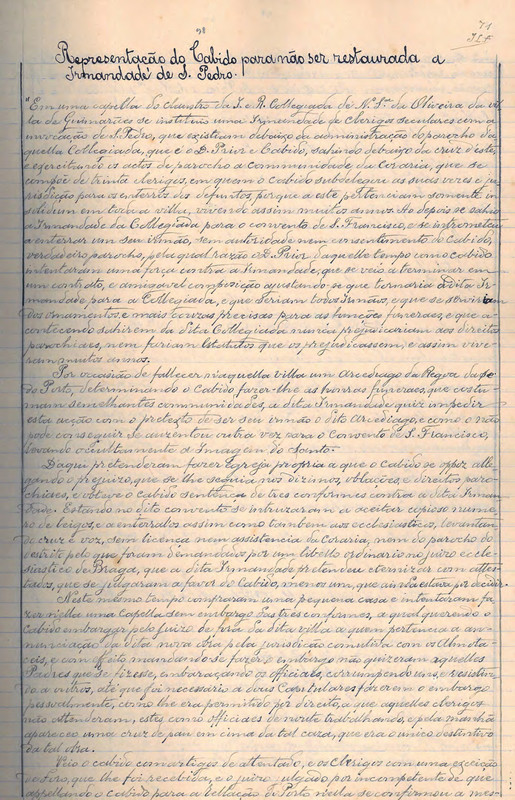 71
Representação do Cabido para não ser restaurada a
Irmandade de S. Pedro.
"Em uma capella do claustro da I. e R. Collegiada de N.ª Sr.ª da Oliveira da vil-
la de Guimarães se instituiu uma Irmandade de clerigos seculares com a
invocação de S. Pedro, que existiam debaixo da administração do parocho da
quella Collegiada, que é o D. Prior e Cabido, sahindo debaixo da cruz d'estes,
e exercitando os actos de parocho a communidade da Coraria, que se
compõe de trinta clerigos, em quem o cabido subdelega as suas vezes e ju-
risdição para os enterros dos defuntos, porque a este pertenciam somente in
solidum em toda a villa, vivendo assim muitos annos. Ao depois se sahiu
a Irmandade da Collegiada para o convento de S. Francisco, e se intrometeu
a enterrar um seu irmão, sem autoridade nem consentimento do Cabido,
verdadeiro parocho, pela qual razão o D. Prior d'aquelle tempo com o cabido
intentaram uma força contra a Irmandade, que se veio a terminar em
um contrato, e amigavel composição ajustando se que tornaria a dita Ir-
mandade para a Collegiada, e que seriam todos Irmãos, e que se serviriam
dos ornamentos, e mais cousas precisas para as funções funeraes, e que a-
contecendo sahirem da dita Collegiada nunca prejudicariam aos direitos
parochiaes, nem fariam Estatutos que os prejudicassem, e assim vive-
ram muitos annos.
Por occasião de fallecer n'aquella villa um Arcediago da Regoa da Sé
do Porto, determinando o Cabido fazer-lhe as honras funeraes, que costu-
mam semelhantes communidades, a dita Irmandade quiz impedir
esta acção com o pretexto de ser seu irmão o dito Arcediago, e como o não
pôde conseguir se auzentou outra vez para o Convento de S. Francisco,
levando occultamente a Imagem do Santo.
D'aqui pretenderam fazer Igreja propria a que o Cabido se oppoz alle-
gando o prejuizo, que se lhe seguia nos dizimos, oblações, e direitos paro-
chiaes, e obteve o cabido sentença de tres conformes contra a dita Irman-
dade. Estando no dito convento se intruzaram a aceitar copioso nume-
ro de leigos, e a enterral-os assim como tambem aos ecclesiasticos, levantan-
do cruz e voz, sem licença nem assistencia da Coraria, nem do parocho do
destrito pelo que foram demandados por um libello ordinario no juizo eccle-
siastico de Braga, que a dita Irmandade pretendeu eternizar com atten-
tados, que se julgaram a favor do Cabido, menos um, que ainda está por decidir.
N'este mesmo tempo compraram uma pequena casa e intentaram fa-
zer n'ella uma Capella sem embargo das tres conformes, a qual querendo o
Cabido embargar pelo juizo de fóra da dita villa a quem pertencia a an-
nunciação da dita nova obra pela jurisdição comulativa com os Almota-
ceis, e com effeito mandando se fazer o embargo não quizeram aquelles
Padres que se fizesse, embaraçando os officiaes, corrompendo uns, e resistin-
do a outros, até que foi necessario a dous Capitulares fazerem o embargo
pessoalmente, como lhe era permitido por direito, a que aquelles clerigos
não attenderam, e estes, como officiaes de noite trabalhando, e pela manhã
appareceu uma cruz de pau em cima da tal caza, que era o unico destintivo
da tal obra.
Veio o cabido com artigos de attentado, e os clerigos com uma exceição
do fôro, que lhe foi recebida, e o juizo julgado por incompetente de que
appellando o cabido para a Rellação do Porto n'ella se confirmou a mes-